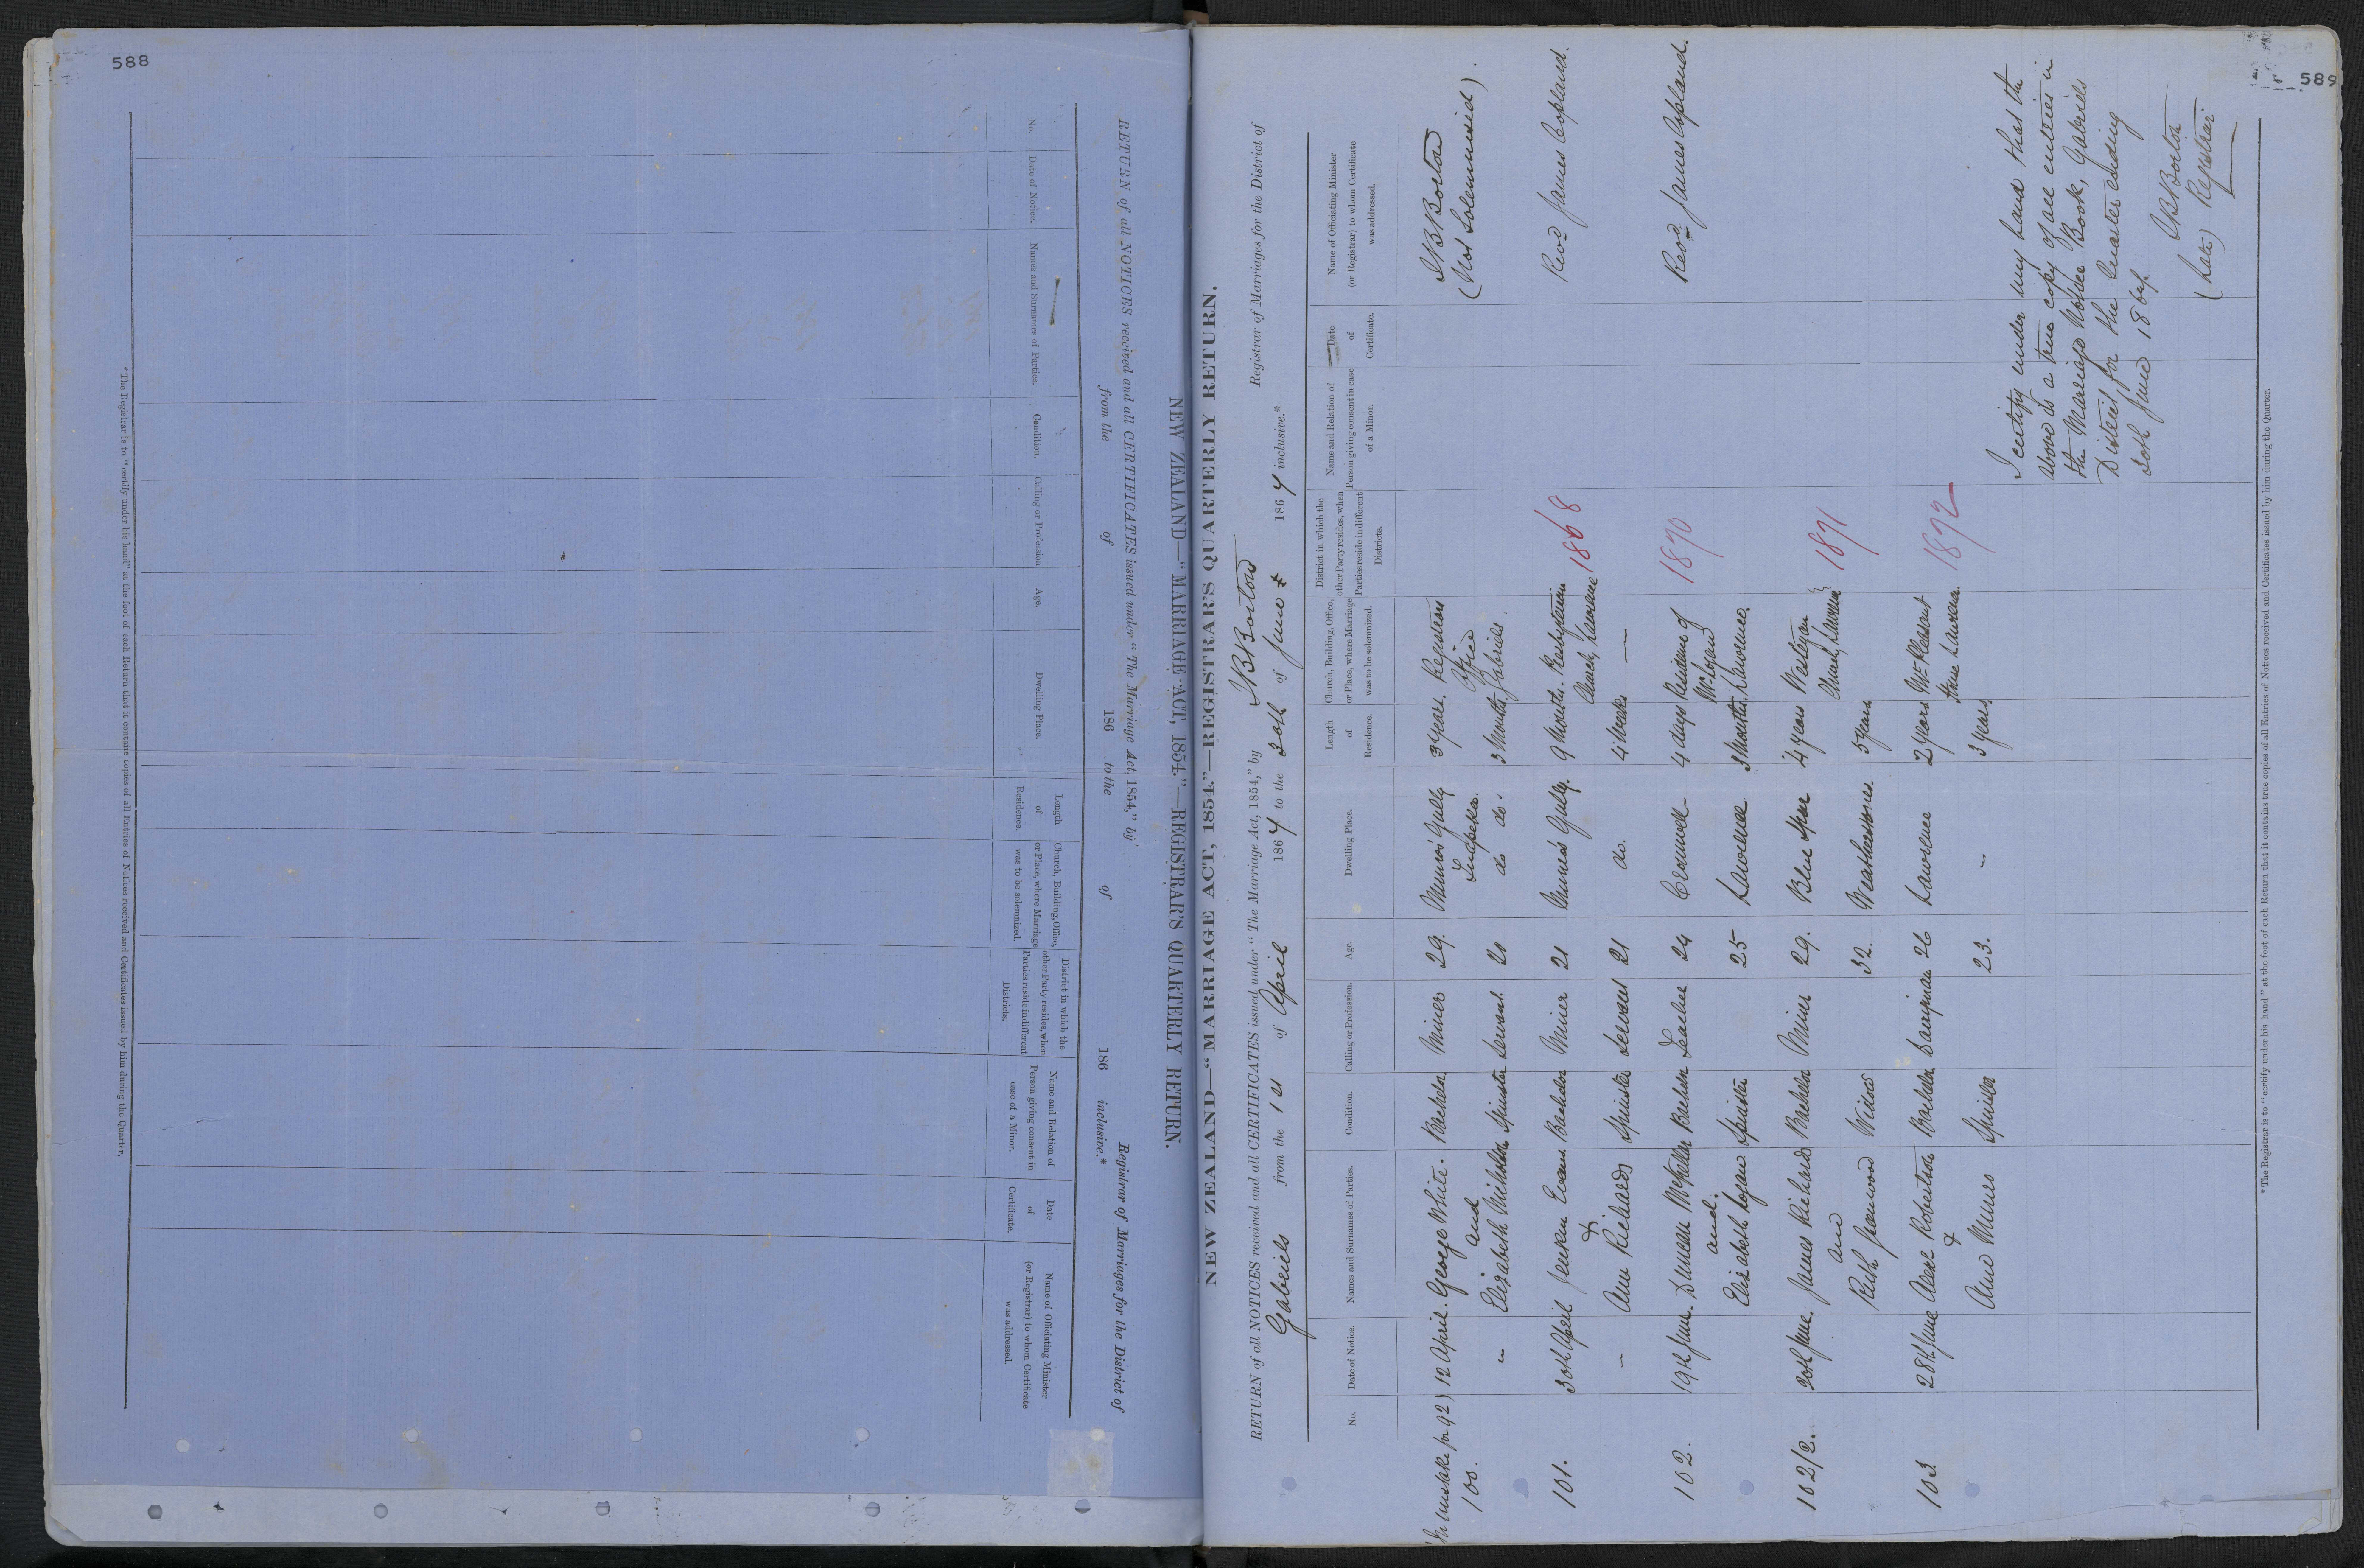 588
NEW ZEALAND—"MARRIAGE ACT, 1854."—REGISTRAR'S QUARTERLY RETURN.
RETURN of all NOTICES received and all CERTIFICATES issued under "The Marriage Act, 1854," by Registrar of Marriages for the District of
from the of 186 to the of 186 inclusive.*
No.
Date of Notice.
Names and Surnames of Parties.
Condition.
Calling or Profession
Age.
Dwelling Place.
Length
of
Residence.
Church, Building, Office,
or Place, where Marriage
was to be solemnized.
District in which the
other Party resides, when
Parties reside in different
Districts.
Name and Relation of
Person giving consent in
case of a Minor.
Date
of
Certificate.
Name of Officiating Minister
(or Registrar) to whom Certificate
was addressed.
*The Registrar is to "certify under his hand" at the foot of each Return that it contains copies of all Entries of Notices received and Certificates issued by him during the Quarter.
589
NEW ZEALAND—"MARRIAGE ACT, 1854."—REGISTRAR'S QUARTERLY RETURN.
RETURN of all NOTICES received and all CERTIFICATES issued under "The Marriage Act, 1854," by JB Borton Registrar of Marriages for the District of
Gabriels from the 1st of April 1867 to the 30th of June 1867 inclusive.*
No.
Date of Notice.
Names and Surnames of Parties.
Condition.
Calling or Profession.
Age.
Dwelling Place.
Length
of
Residence.
Church, Building, Office,
or Place, where Marriage
was to be solemnized.
District in which the
other Party resides, when
Parties reside in different
Districts.
Name and Relation of
Person giving consent in case
of a Minor.
Date
of
Certificate.
Name of Officiating Minister
(or Registrar) to whom Certificate
was addressed.
(In mistake for 92) 12 April. George White. Bachelor Miner 29. Munro's Gully 3 Years. Registrars JB Borton
100. and Tuapeka. Office (Not Solemnized).
" Elizabeth Nicholson Spinster Servant. 20 do do. 3 Months Gabriels.
101. 30th April Jenkin Evans Bachelor Miner 21 Munro's Gully. 9 Months. Presbyterian 1868 Revd James Copland.
& Church, Lawrence
— Ann Richards Spinster Servant 21 do. 4 Weeks —
102. 19th June. Duncan McKellar Bachelor Teacher 24 Cromwell 4 days Residence of 1870 Revd James Copland.
and. Mr Logan
Elizabeth Logan Spinster 25 Lawrence 3 Months. Lawrence.
102/2. 20th June. James Richards Bachelor Miner 29. Blue Spur 4 years Wesleyan 1871
and Church, Lawrence
Ruth Widow 32. Weatherstones 5 Years
103 28th June Alexr Robertson Bachelor Dairyman 26 Lawrence 2 years 1872
& Lawrence.
Ann Munro Spinster 23. — 3 years
I certify under my hand that the
above is a true copy of all entries in
the Marriage Notice Book, Gabriels
District for the Quarter ending
30th June 1867.
JB Borton
(late) Registrar
*The Registrar is to "certify under his hand" at the foot of each Return that it contains true copies of all Entries of Notices received and Certificates issued by him during the Quarter.